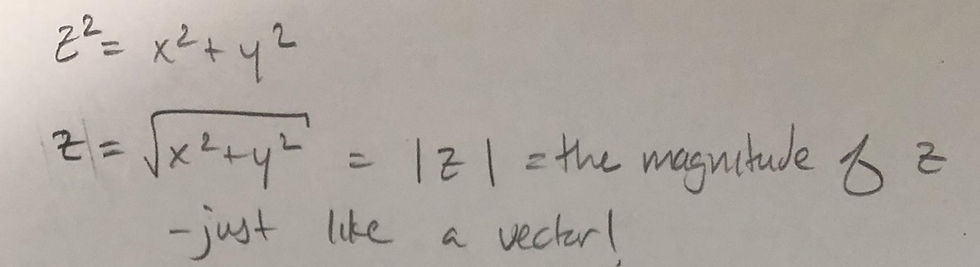 z² = x² + y²
z = √(x² + y²) = |z| = the magnitude of z
- just like a vector!